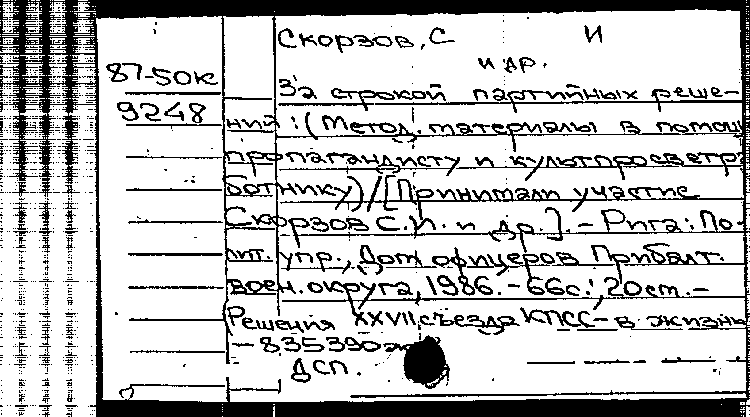 Скорзов, С И
и др.
87-50к
За строкой партийных реше-
9248
ний : (Метод. материалы в помощ
пропагандисту и культпросветра
ботнику) / [Принимали участие
Скорзов С.И. и др.]. - Рига: По-
лит. упр., Дом офицеров Прибалт.
воен. округа, 1986. - 66с.; 20см. -
Решения XXVII съезда КПСС - в жизнь
- 835390
ДСП.